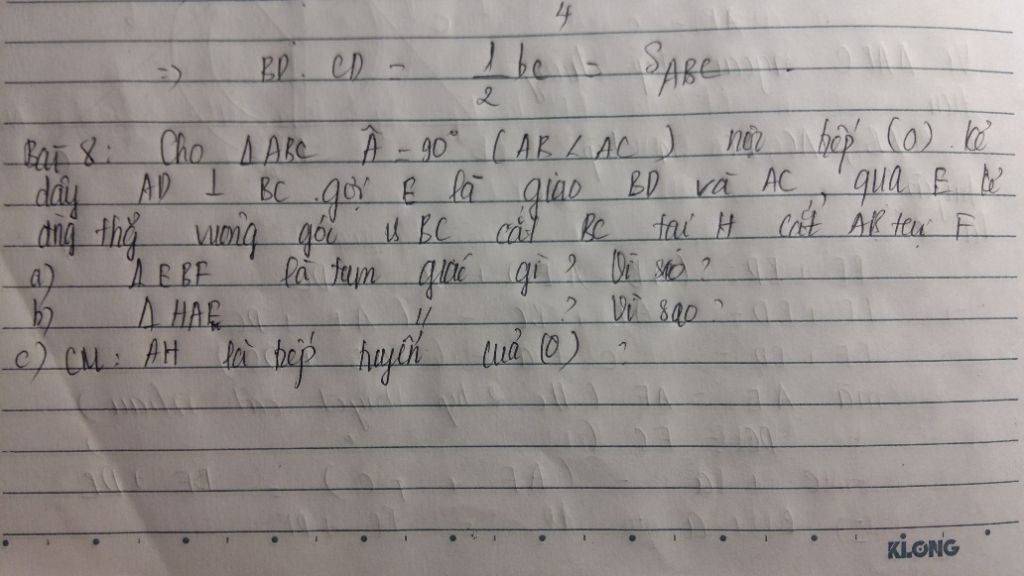 4
=> BD . CD = 1/2 bc = SABC
Bài 8: Cho ΔABC Â = 90° (AB < AC) nội tiếp (O). kẻ
dây AD ⊥ BC. gọi E là giao BD và AC, qua E kẻ
đng thg vuông góc BC cắt BC tại H cắt AB tại F
a) ΔEBF là tam giác gì? Vì sao?
b) ΔHAF // ? Vì sao?
c) CM: AH là tiếp tuyến của (O)?
KLONG